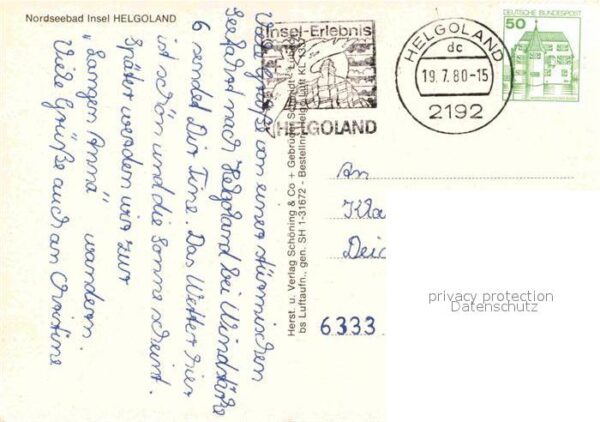 Nordseebad Insel HELGOLAND
Viele Grüße von einer stürmischen
Seefahrt nach Helgoland bei Windstärke
6 sendet Dir Tine. Das Wetter hier
ist schön und die Sonne scheint.
Später werden wir zur
"Langen Anna" wandern.
Viele Grüße auch an Christine
Herst. u. Verlag Schöning & Co + Gebrüder Schmidt - Lübeck
bs Luftaufn., gen. SH 1-31672 - Bestellnr. Helgoland
Insel-Erlebnis
HELGOLAND
HELGOLAND
dc
19.7.80-15
2192
DEUTSCHE BUNDESPOST
50
An
Kla
Deic
6333
privacy protection
Datenschutz